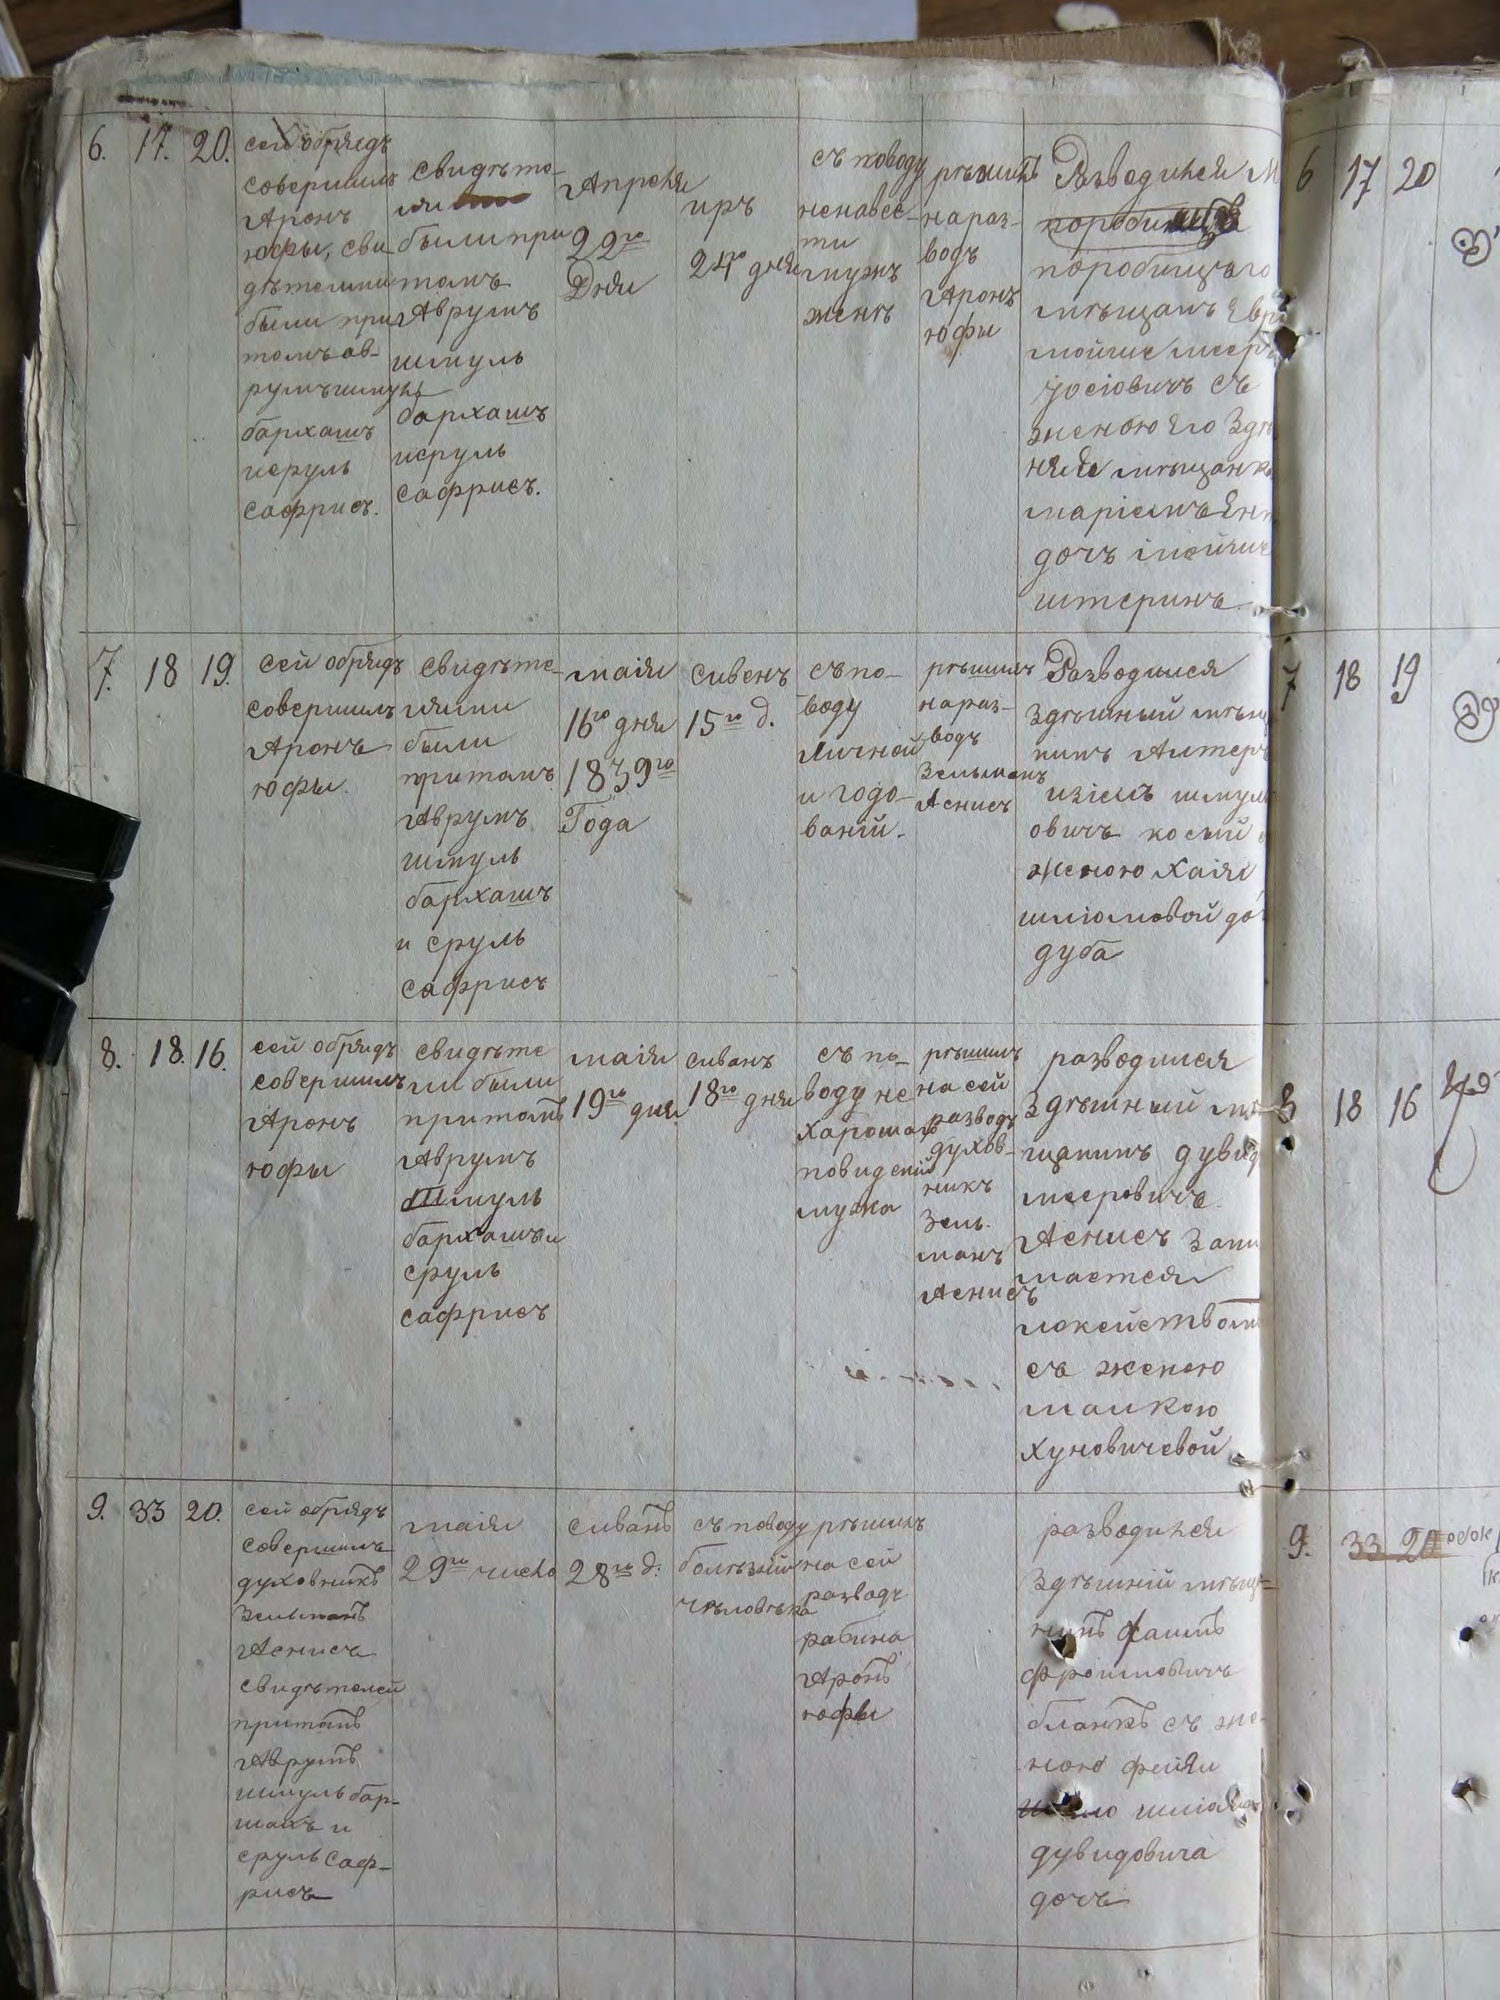 6. 17. 20.
сей обрядъ
совершилъ
Аронъ
юфы, сви
дѣтелями
были при
томъ ав-
румъ шмуль
бархашъ
исруль
сафрисъ.
свидѣте-
ли
были при
томъ
Аврумъ
шмуль
бархашъ
исруль
сафрисъ.
Апреля
22го
Дня
иръ
24го дня
съ поводу
ненавес-
ти
мужъ
женѣ
рѣшилъ
на раз-
водъ
Аронъ
юфы
Разводился М
поробищъ
поробищаго
мѣщанъ Евр
мойше меер
Іосіовичъ съ
женою Его Здѣ
няя мѣщанк
маріемъ Ен
дочъ мойше
штеринъ
6 17 20
7. 18 19.
сей обрядъ
совершилъ
Аронъ
юфы.
свидѣте-
лями
были
притомъ
Аврумъ
шмуль
бархашъ
и сруль
сафрисъ
маія
16го дня
1839го
Года
сивенъ
15го д.
съ по-
воду
Личной
и годо-
ваній.
рѣшилъ
на раз-
водъ
Зельманъ
Аснисъ
Разводился
здѣшный мѣщ
нинъ Алтеръ
изіель шмул
овичъ косый
женою Хаія
шліомовой до
дуба
7 18 19
8. 18. 16.
сей обрядъ
совершилъ
Аронъ
юфы
свидѣте
ли были
притомъ
Аврумъ
Шмуль
бархашъ и
сруль
сафрисъ
маія
19го дня
сиванъ
18го дня
съ по-
воду не
харошаго
повиденій
мужа
рѣшилъ
на сей
разводъ
духов-
никъ
Зель-
манъ
Аснисъ
разводился
Здѣшный мѣ
щанинъ дувид
мееровичъ
Аснисъ зани
мается
локействомъ
съ женою
малкою
хуновичевой
8 18 16
9. 33 20.
сей обрядъ
совершилъ
духовникъ
Зельманъ
Аснисъ
свидѣтелей
притомъ
Аврумъ
шмуль бар-
шахъ и
сруль саф-
рисъ
маія
29го число
сиванъ
28го д.
съ поводу
болѣзни
чѣловѣка
рѣшилъ
на сей
разводъ
рабина
Аронъ
юфы
разводился
Здѣшній мѣща-
нинъ хаимъ
фроимовичъ
бланкъ съ же-
ною фейги
шліома
дувидовича
дочъ
9. 33 20